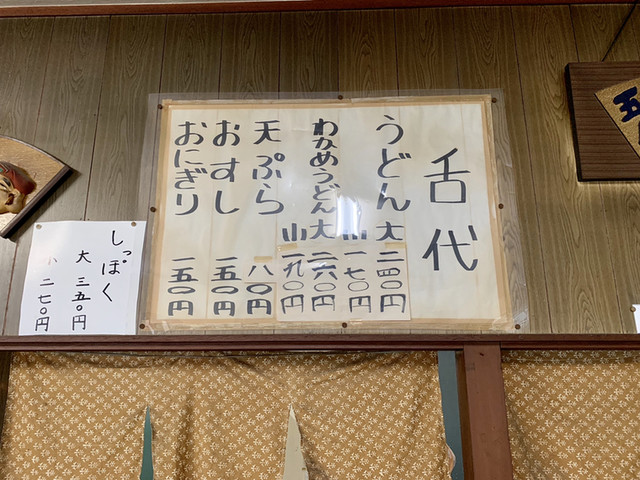 舌代
うどん 大 二四〇円
小 一七〇円
わかめうどん 大 二六〇円
小 一九〇円
天ぷら 八〇円
おすし 一五〇円
おにぎり 一五〇円
しっぽく
大 三五〇円
小 二七〇円
五